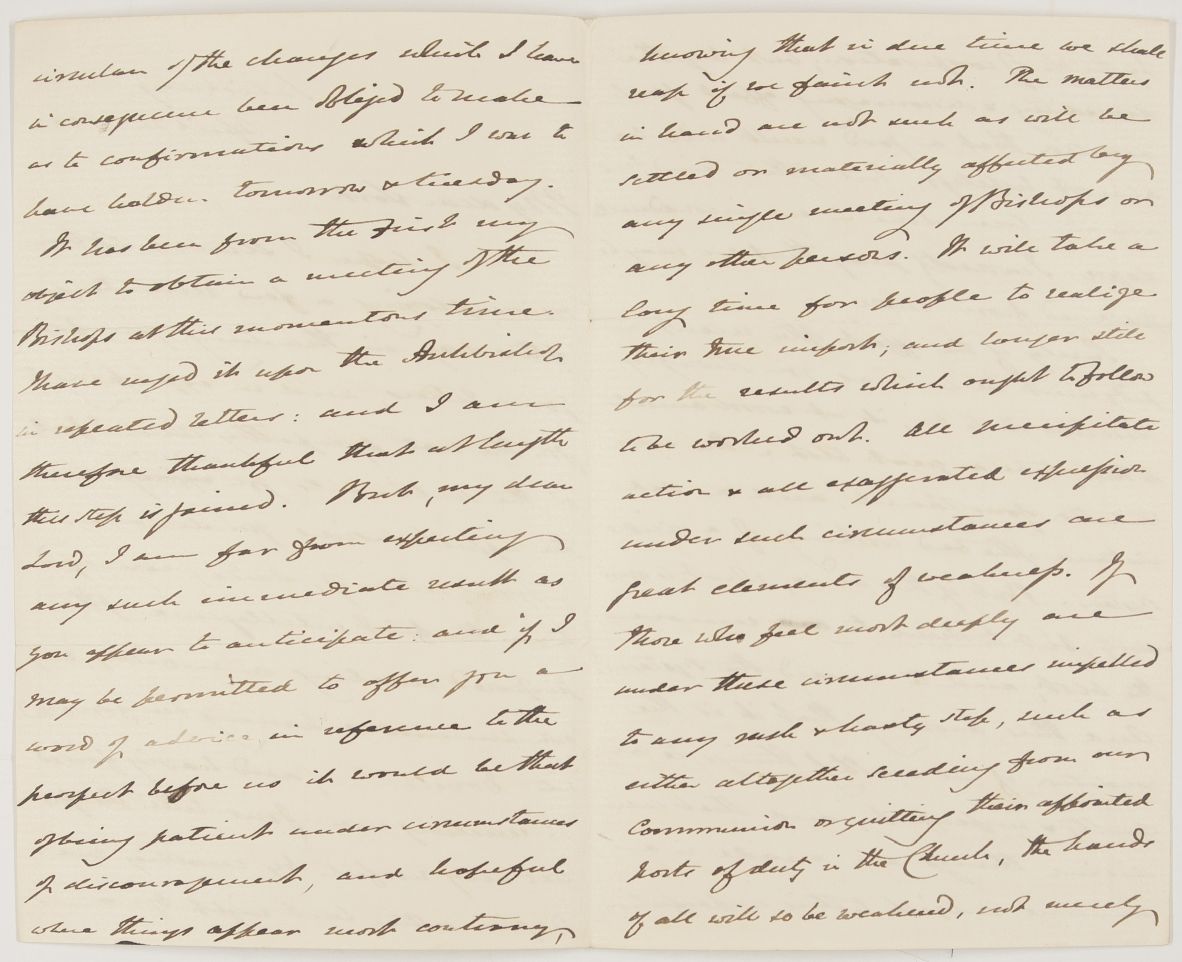 circular of the changes which I have
in consequence been obliged to make
as to confirmations which I was to
have holden tomorrow & tuesday.
It has been from the first my
object to obtain a meeting of the
Bishops at this momentous time.
I have urged it upon the Archbishop
in repeated letters: and I am
therefore thankful that at length
this step is gained. But, my dear
Lord, I am far from expecting
any such immediate result as
you appear to anticipate: and if I
may be permitted to offer you a
word of advice in reference to the
prospect before us it would be that
of being patient under circumstances
of discouragement, and hopeful
where things appear most contrary,
knowing that in due time we shall
reap if we faint not. The matters
in hand are not such as will be
settled or materially affected by
any single meeting of Bishops or
any other persons. It will take a
long time for people to realize
their true import; and longer still
for the results which ought to follow
to be worked out. All precipitate
action & all exaggerated expression
under such circumstances are
great elements of weakness. If
those who feel most deeply are
under these circumstances impelled
to any rash & hasty step, such as
either altogether seceding from our
Communion or quitting their appointed
posts of duty in the Church, the hands
of all will so be weakened, not merely